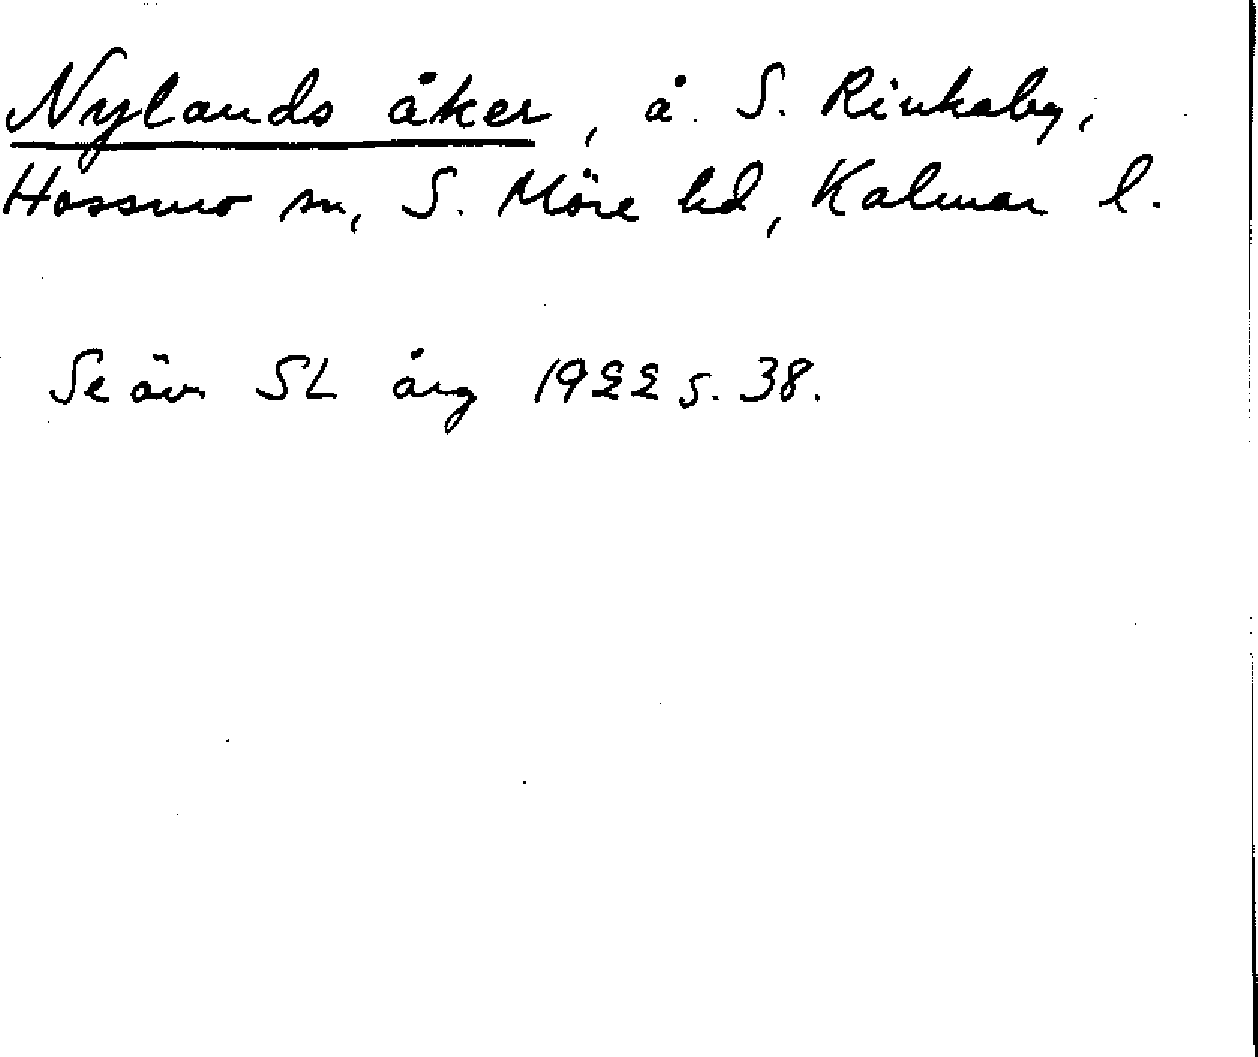 Nylands åker, å. S. Rinkaby,
Hossmo sn, S. Möre hd, Kalmar l.
Se äv. SL årg 1922 s. 38.